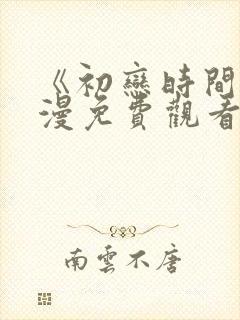 《初戀時間
漫免費觀看
南雲不唐